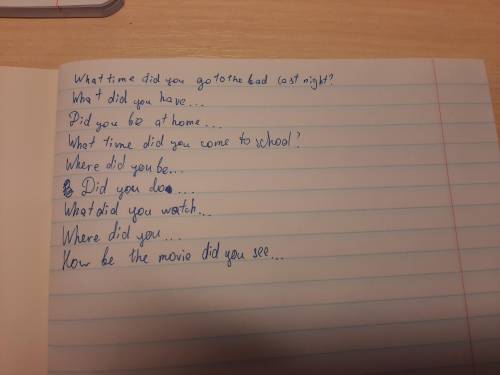 What time did you go to the bad last night?
What did you have...
Did you be at home...
What time did you come to school?
Where did you be...
Did you do...
What did you watch...
Where did you...
How be the movie did you see...